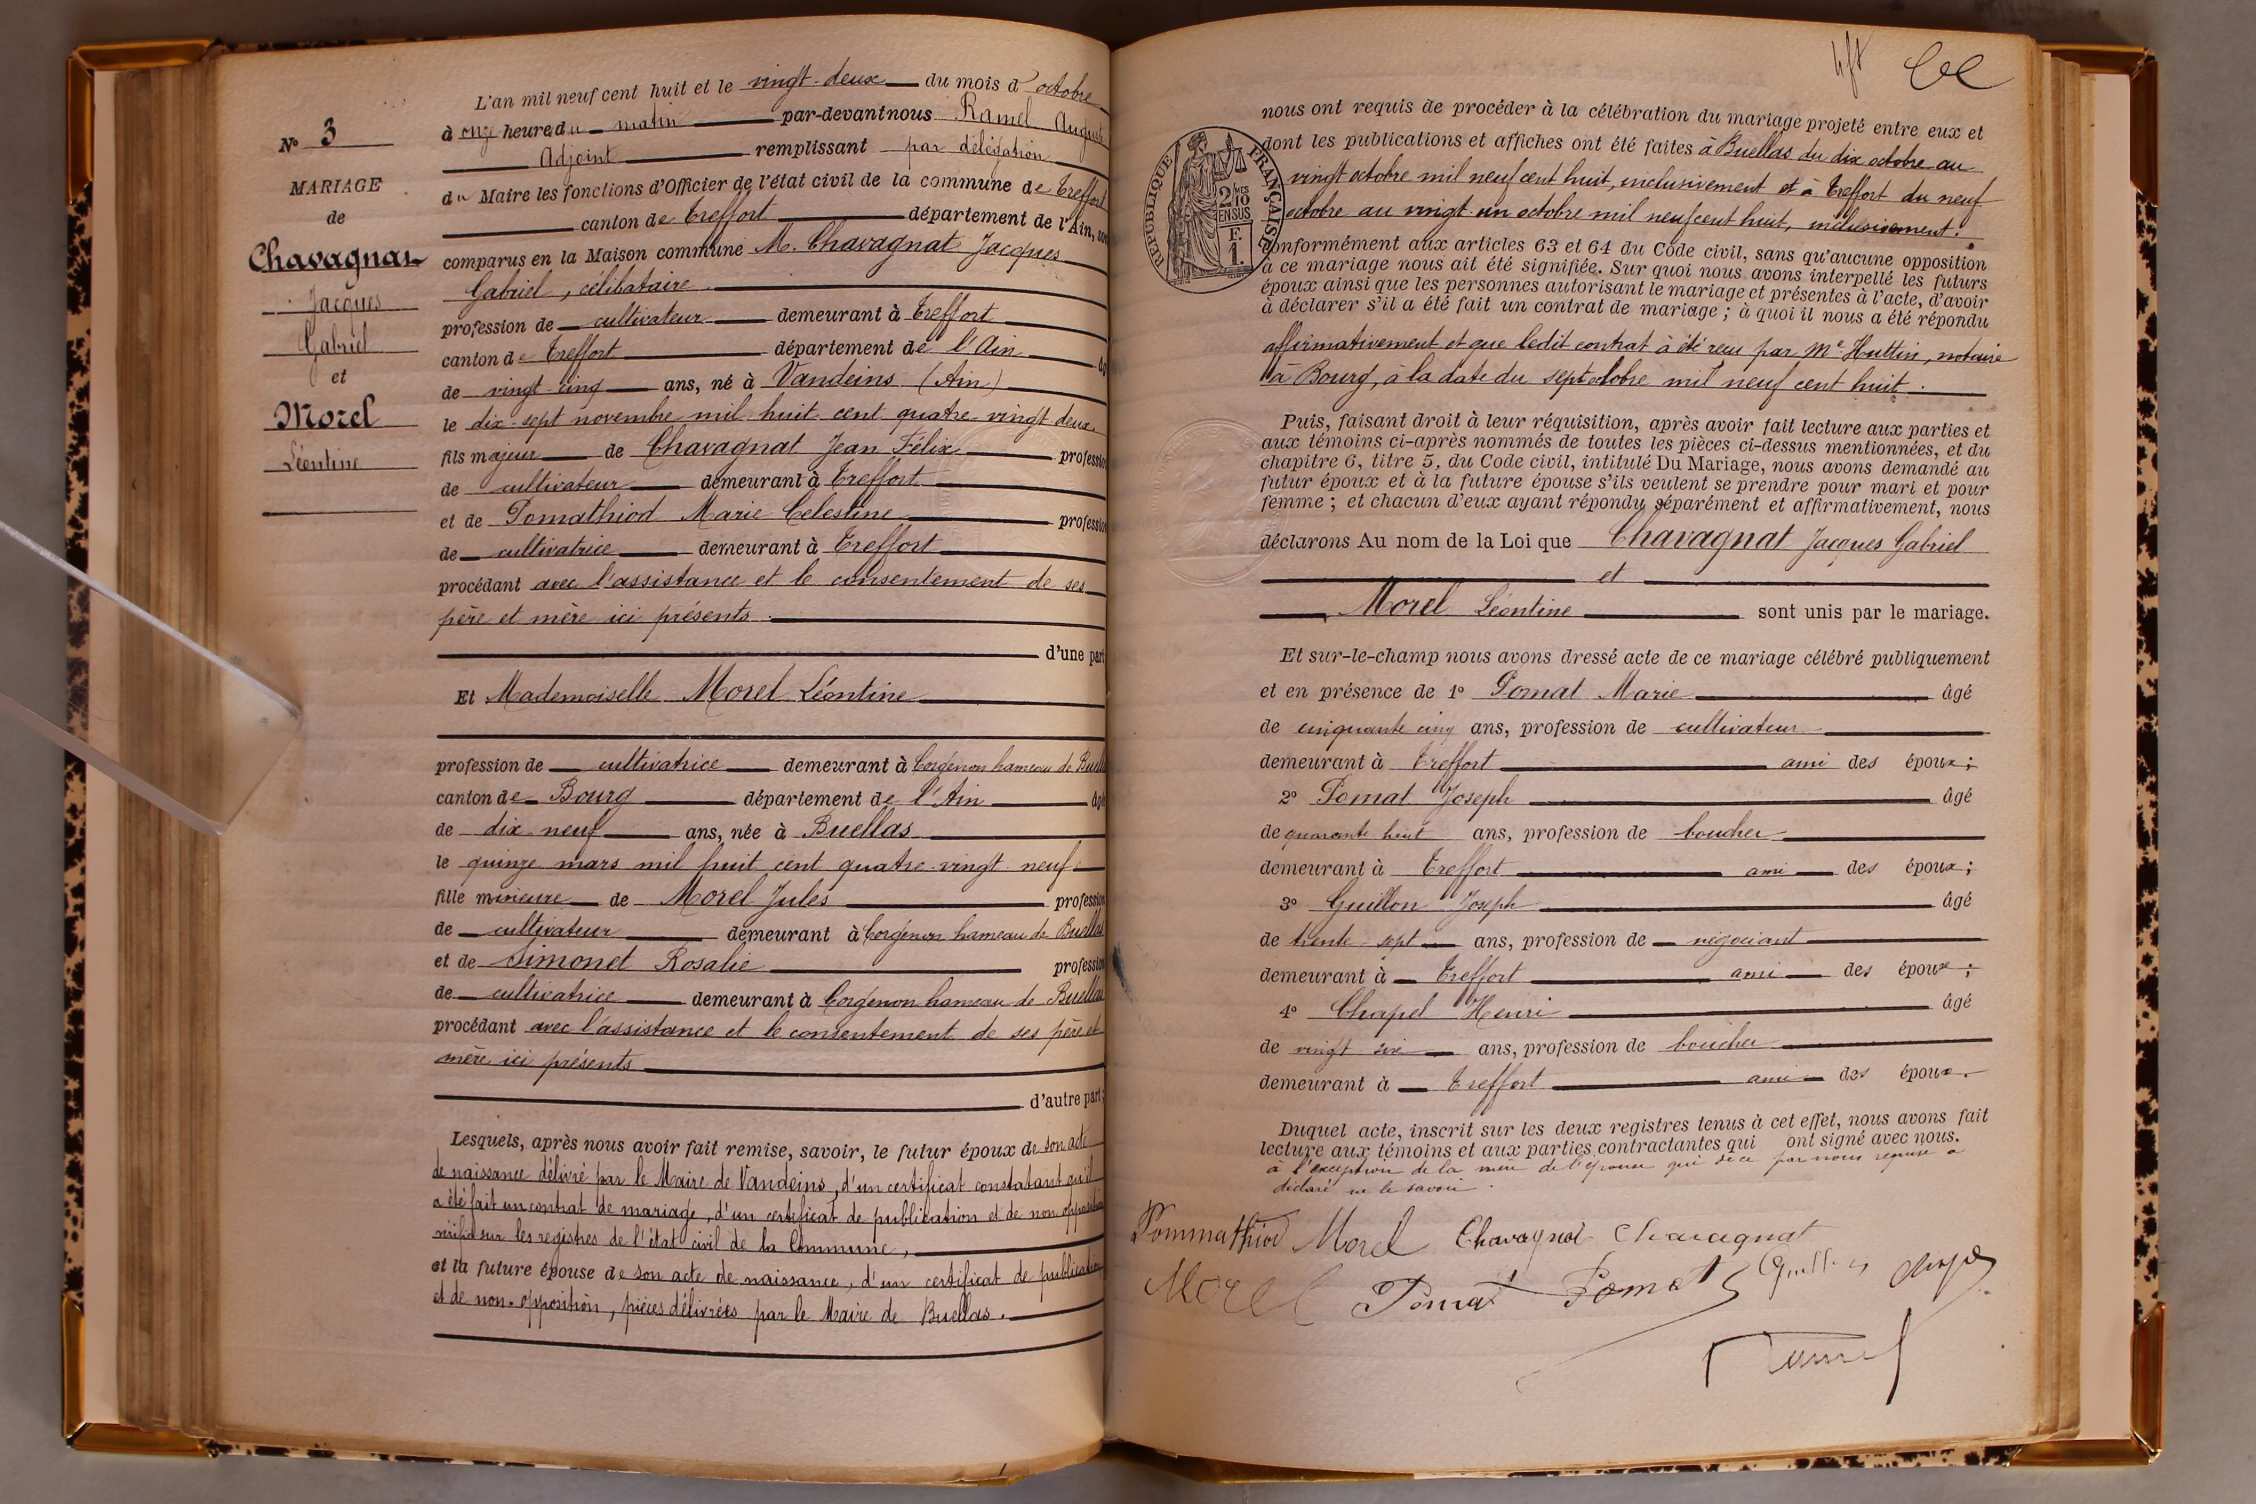 N° 3
MARIAGE
de
Chavagnat
Jacques
Gabriel
et
Morel
Léontine
L'an mil neuf cent huit et le vingt-deux du mois d'octobre
à onze heure du matin par-devant nous Ramel Auguste
Adjoint remplissant par délégation
du Maire les fonctions d'Officier de l'état civil de la commune de Treffort
canton de Treffort département de l'Ain, sont
comparus en la Maison commune M. Chavagnat Jacques
Gabriel, célibataire.
profession de cultivateur demeurant à Treffort
canton de Treffort département de l'Ain âgé
de vingt-cinq ans, né à Vandeins (Ain)
le dix-sept novembre mil huit cent quatre-vingt deux
fils majeur de Chavagnat Jean Félix profession
de cultivateur demeurant à Treffort
et de Pomathiod Marie Celestine profession
de cultivatrice demeurant à Treffort
procédant avec l'assistance et le consentement de ses
père et mère ici présents.
d'une part
Et Mademoiselle Morel Léontine
profession de cultivatrice demeurant à Corgenon hameau de Buellas
canton de Bourg département de l'Ain âgée
de dix-neuf ans, née à Buellas
le quinze mars mil huit cent quatre-vingt-neuf
fille mineure de Morel Jules profession
de cultivateur demeurant à Corgenon hameau de Buellas
et de Simonet Rosalie profession
de cultivatrice demeurant à Corgenon hameau de Buellas
procédant avec l'assistance et le consentement de ses père et
mère ici présents
d'autre part;
Lesquels, après nous avoir fait remise, savoir, le futur époux de son acte
de naissance délivré par le Maire de Vandeins, d'un certificat constatant qu'il
a été fait un contrat de mariage, d'un certificat de publication et de non opposition
vérifié sur les registres de l'état civil de la Commune,
et la future épouse de son acte de naissance, d'un certificat de publication
et de non-opposition, pièces délivrées par le Maire de Buellas.
RÉPUBLIQUE FRANÇAISE
2/10
EN SUS
F.
1.
nous ont requis de procéder à la célébration du mariage projeté entre eux et
dont les publications et affiches ont été faites à Buellas du dix octobre au
vingt octobre mil neuf cent huit, inclusivement et à Treffort du neuf
octobre au vingt-un octobre mil neuf cent huit, inclusivement.
conformément aux articles 63 et 64 du Code civil, sans qu'aucune opposition
à ce mariage nous ait été signifiée. Sur quoi nous avons interpellé les futurs
époux ainsi que les personnes autorisant le mariage et présentes à l'acte, d'avoir
à déclarer s'il a été fait un contrat de mariage ; à quoi il nous a été répondu
affirmativement et que ledit contrat à été reçu par Me Huttin, notaire
à Bourg, à la date du sept octobre mil neuf cent huit.
Puis, faisant droit à leur réquisition, après avoir fait lecture aux parties et
aux témoins ci-après nommés de toutes les pièces ci-dessus mentionnées, et du
chapitre 6, titre 5, du Code civil, intitulé Du Mariage, nous avons demandé au
futur époux et à la future épouse s'ils veulent se prendre pour mari et pour
femme ; et chacun d'eux ayant répondu séparément et affirmativement, nous
déclarons Au nom de la Loi que Chavagnat Jacques Gabriel
et
Morel Léontine sont unis par le mariage.
Et sur-le-champ nous avons dressé acte de ce mariage célébré publiquement
et en présence de 1° Pomat Marie âgé
de cinquante cinq ans, profession de cultivateur
demeurant à Treffort ami des époux;
2° Pomat Joseph âgé
de quarante huit ans, profession de boucher
demeurant à Treffort ami des époux;
3° Guillon Joseph âgé
de trente-sept ans, profession de négociant
demeurant à Treffort ami des époux;
4° Chapel Henri âgé
de vingt six ans, profession de boucher
demeurant à Treffort ami des époux.
Duquel acte, inscrit sur les deux registres tenus à cet effet, nous avons fait
lecture aux témoins et aux parties contractantes qui ont signé avec nous.
à l'exception de la mère de l'épouse qui de ce par nous requise a
déclaré ne le savoir.
Pommathiod Morel Chavagnat Chavagnat
Morel Pomat Pomat Guillon
Ramel